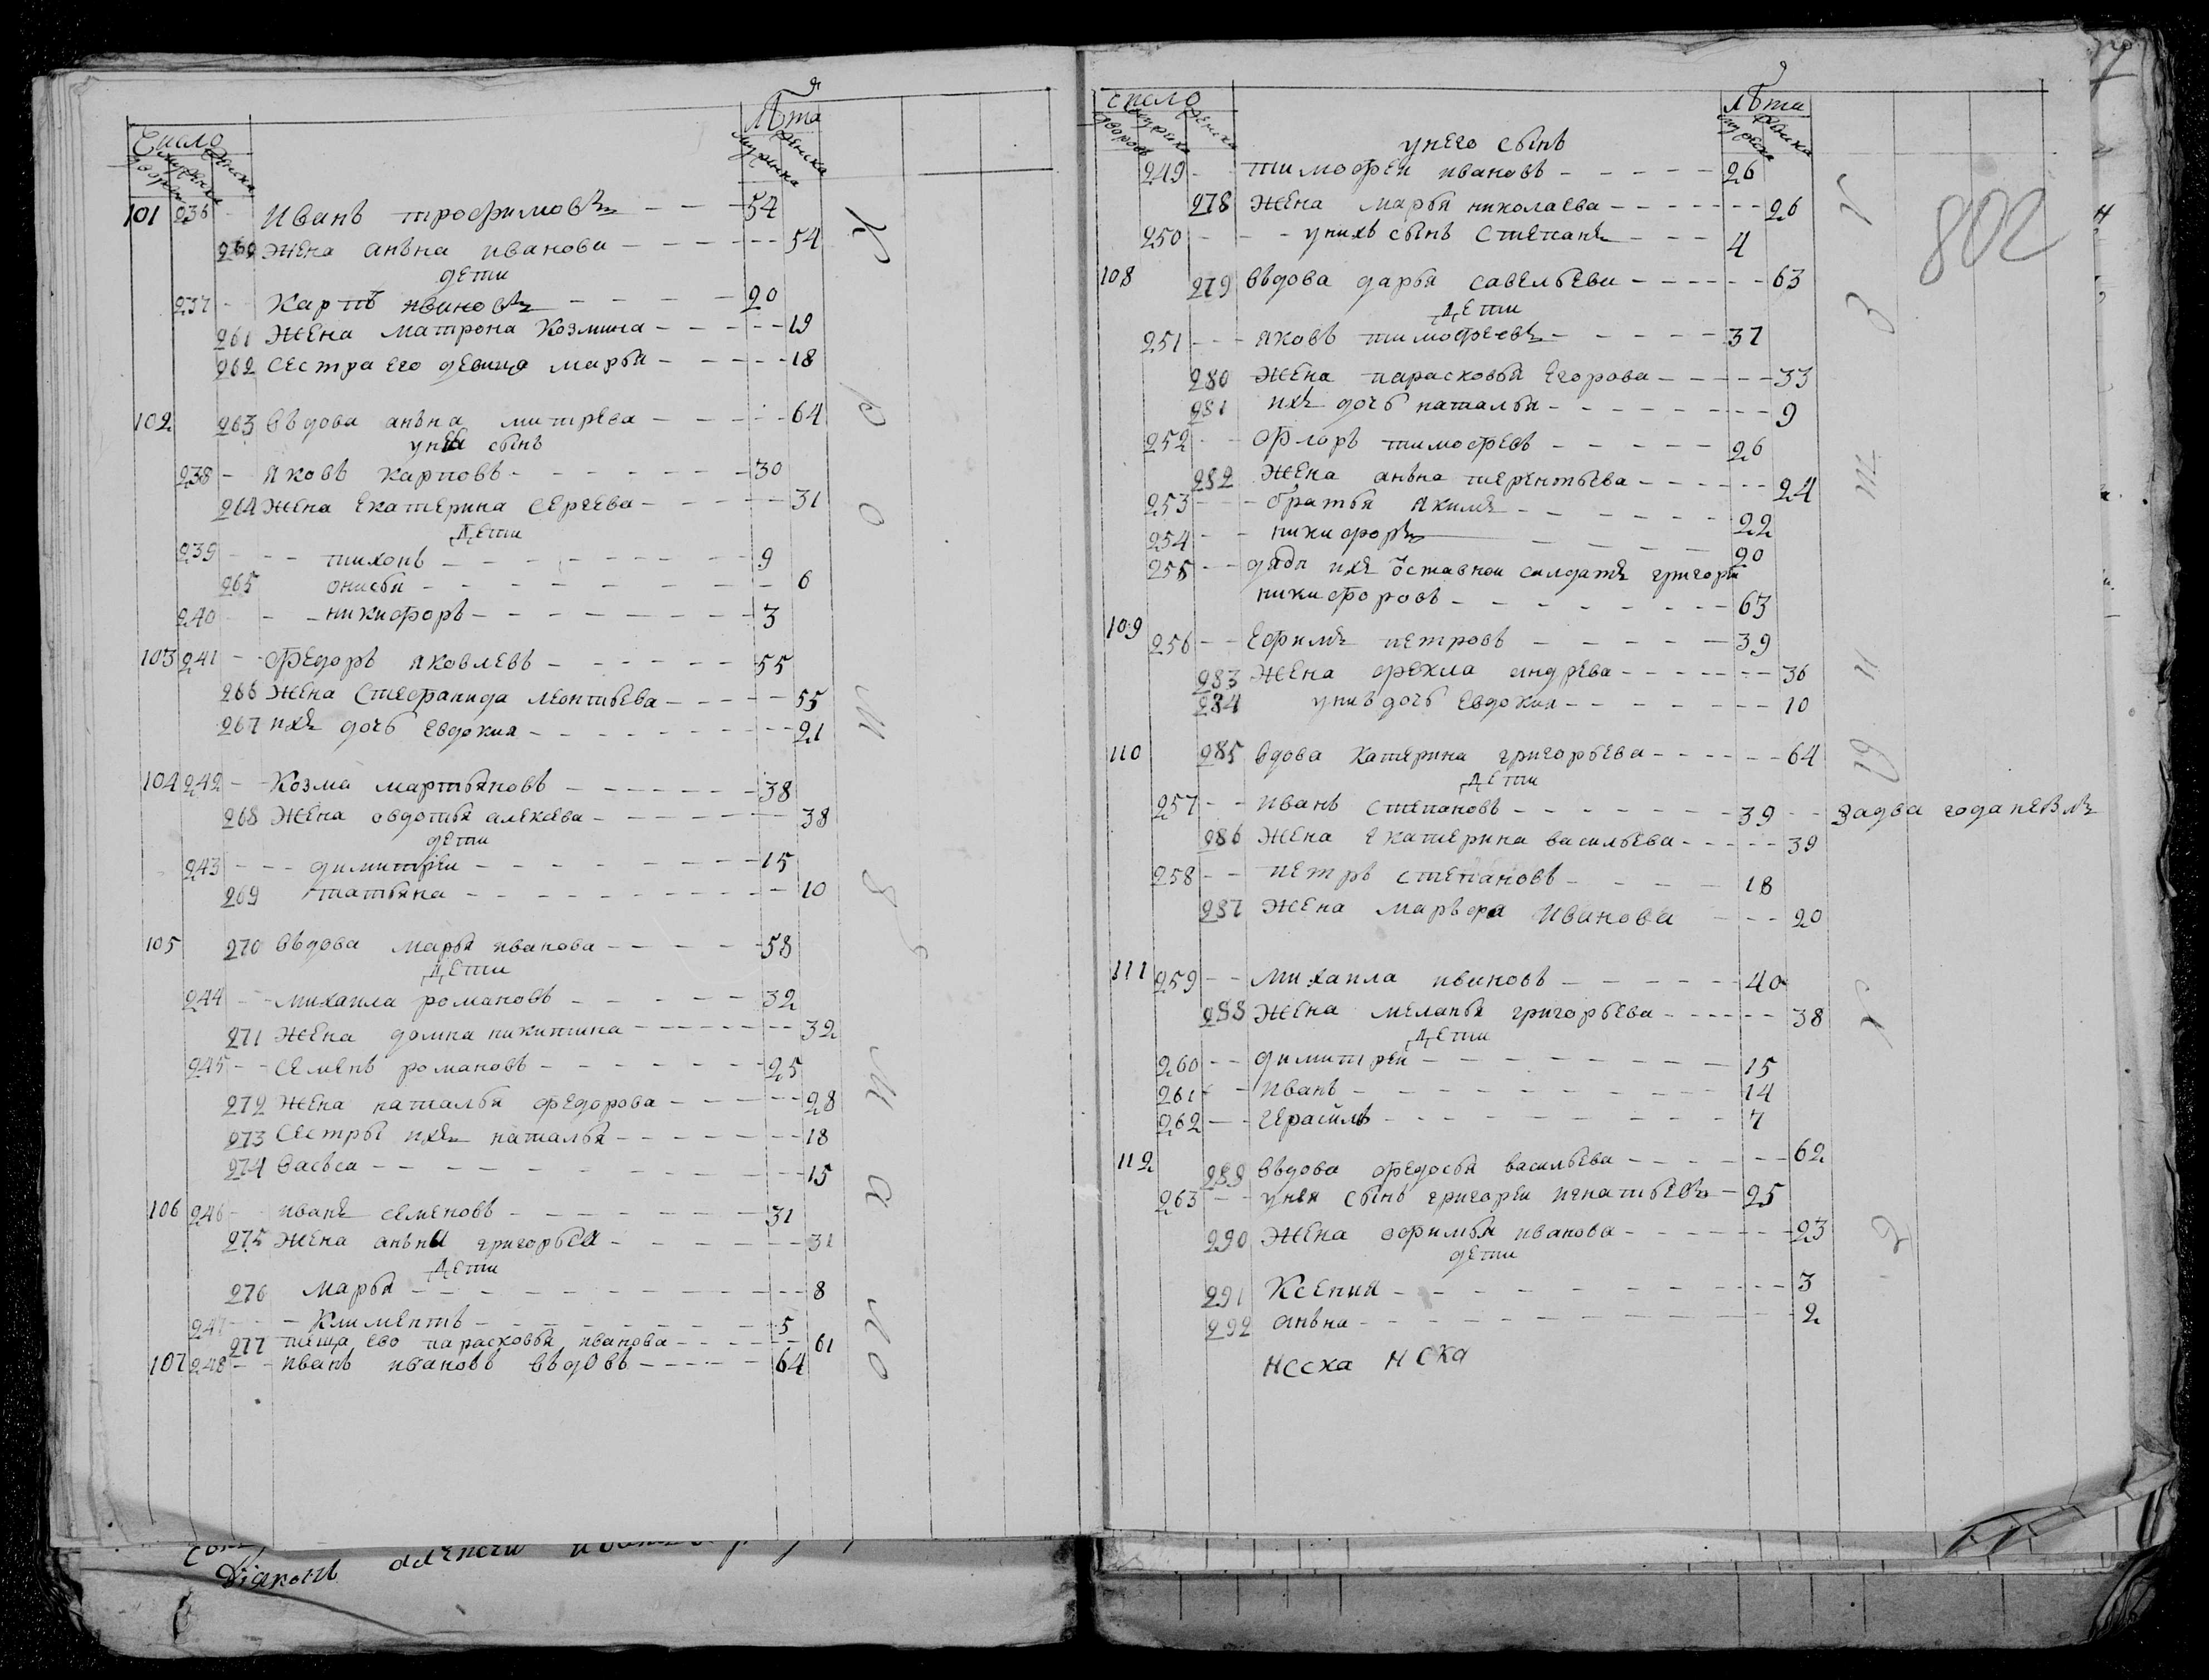 Число
дворовъ мужска женска
Лѣта
мужска женска
101 236 Иванъ трофимовъ 54
260 жена анъна иванова 54
дети
237 Карпъ ивановъ 20
261 жена матрона Козмина 19
262 сестра его девица марья 18
102 263 въдова анъна митрева 64
унея сынъ
238 яковъ карповъ 30
264 жена екатерина сергеева 31
Дети
239 тихонъ 9
265 онисья 6
240 никифоръ 3
103 241 Федоръ яковлевъ 55
266 жена Стефанида леонтьева 55
267 ихъ дочь евдокия 21
104 242 Козма мартьяновъ 38
268 жена овдотья алексева 38
дети
243 димитреи 15
269 татьяна 10
105 270 въдова марья иванова 58
Дети
244 михаила романовъ 32
271 жена домна никитина 32
245 семенъ романовъ 25
272 жена наталья федорова 28
273 сестры ихъ наталья 18
274 васъса 15
106 246 иванъ семеновъ 31
275 жена анъна григорьева 31
Дети
276 марья 8
247 Климентъ 5
277 теща ево парасковья иванова 61
107 248 иванъ ивановъ въдовъ 64
К р о м ѣ м а л о
число
дворовъ мужска женска
лѣта
мужска женска
802
унего сынъ
249 тимофеи ивановъ 26
278 жена марья николаева 26
250 унихъ сынъ Степанъ 4
108 279 въдова дарья савельева 63
Дети
251 яковъ тимофеевъ 37
280 жена парасковья Егорова 33
281 ихъ дочь наталья 9
252 Флоръ тимофевъ 26
282 жена анъна терентьева 24
253 братья якимъ 22
254 никифоръ 20
255 дядя ихъ ѿставнои салдатъ григореи
никифоровъ 63
109 256 Ефимъ петровъ 39
283 жена фекла андрева 36
284 унихъ дочь евдокия 10
110 285 вдова катерина григорьева 64
Дети
257 иванъ степановъ 39 задва года небылъ
286 жена екатерина васильева 39
258 петръ степановъ 18
287 жена марѣфа Иванова 20
111 259 михаила ивановъ 40
288 жена меланья григорьева 38
Дети
260 димитреи 15
261 иванъ 14
262 герасимъ 7
112 289 въдова федосья васильева 62
263 унея сынъ григореи игнатьевъ 25
290 жена офимья иванова 23
дети
291 Ксения 3
292 анъна 2
Діяконъ алексеи